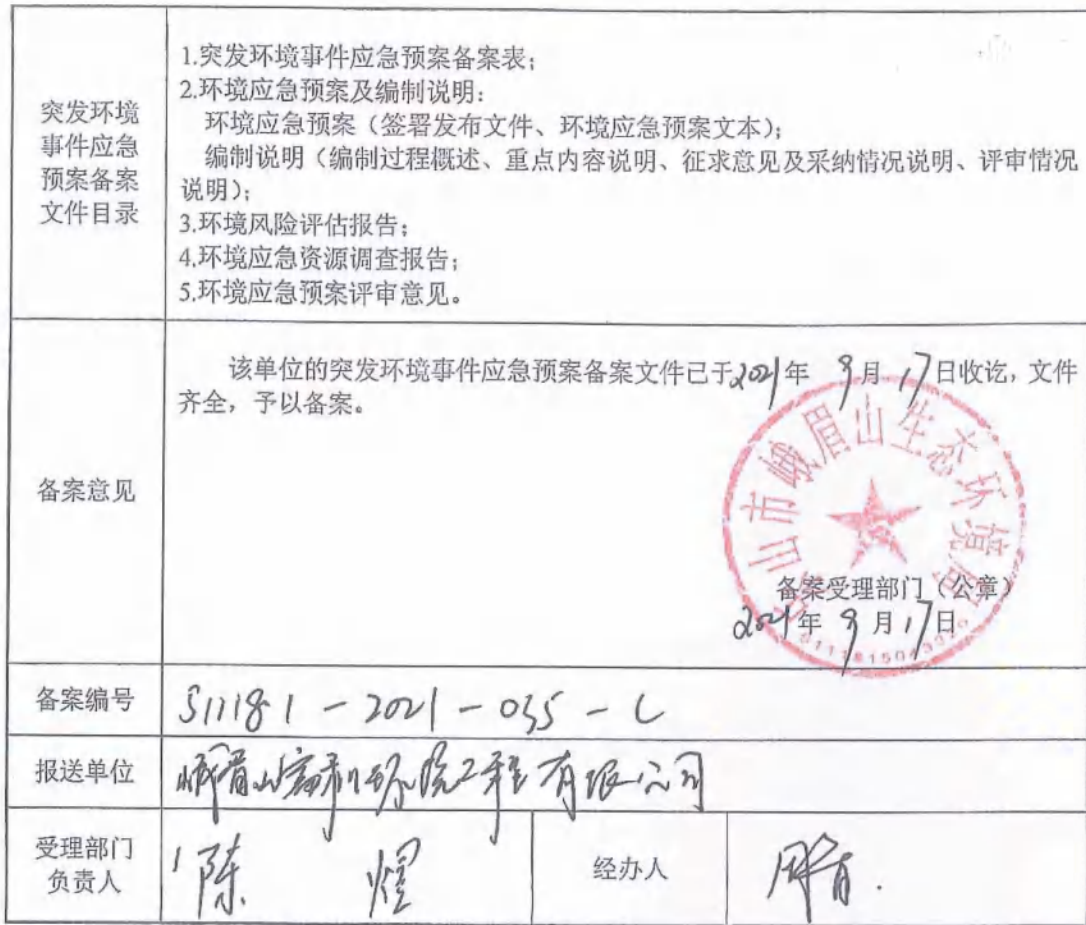 突发环境
事件应急
预案备案
文件目录
1.突发环境事件应急预案备案表；
2.环境应急预案及编制说明：
环境应急预案（签署发布文件、环境应急预案文本）；
编制说明（编制过程概述、重点内容说明、征求意见及采纳情况说明、评审情况
说明）；
3.环境风险评估报告；
4.环境应急资源调查报告；
5.环境应急预案评审意见。
备案意见
该单位的突发环境事件应急预案备案文件已于2021年 9月 17日收讫，文件
齐全，予以备案。
山市峨眉山生态环境局
备案受理部门（公章）
2021年 9月 17日
备案编号
511181-2021-035-L
报送单位
峨眉山 环境工程有限公司
受理部门
负责人
陈煜
经办人